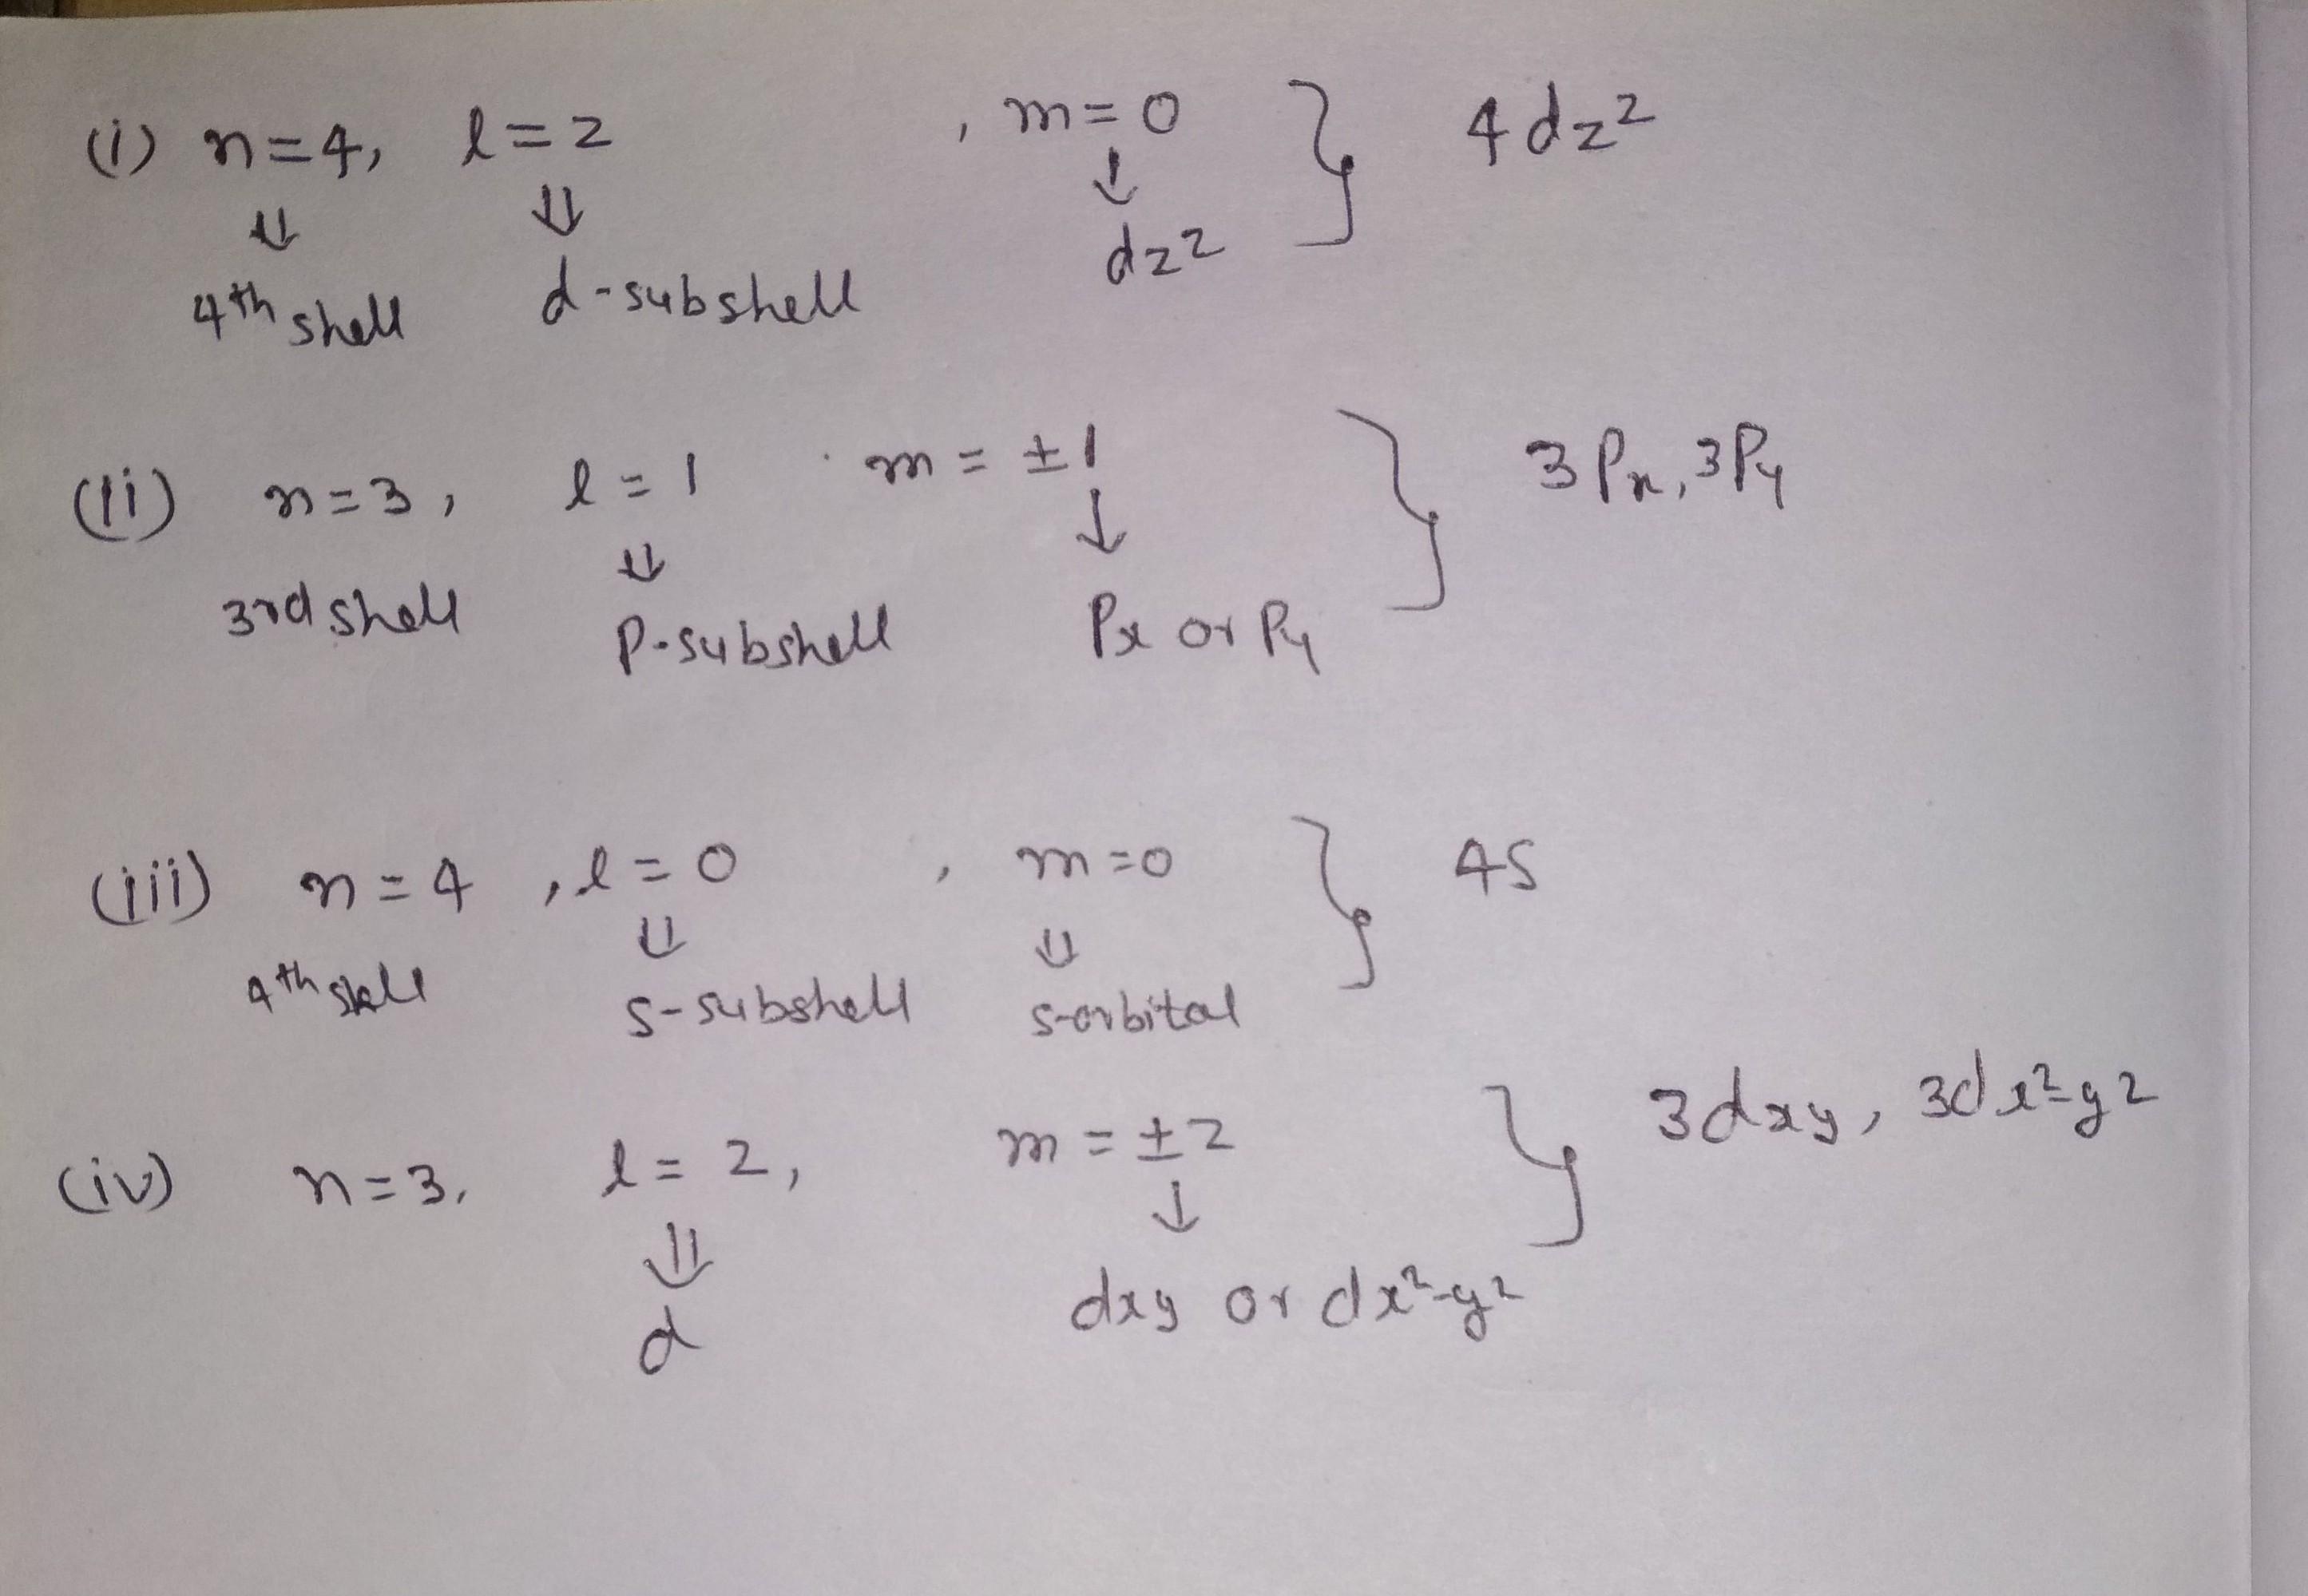 (i) n=4, l=2 , m=0 } 4dz²
⇓ ⇓ ↓
4th shell d-subshell dz²
(ii) n=3, l=1 m=±1 } 3Px, 3Py
⇓ ↓
3rd shell P-subshell Px or Py
(iii) n=4 , l=0 , m=0 } 4S
⇓ ⇓
4th shell S-subshell s-orbital
(iv) n=3, l=2, m=±2 } 3dxy, 3dx²-y²
⇓ ↓
d dxy or dx²-y²